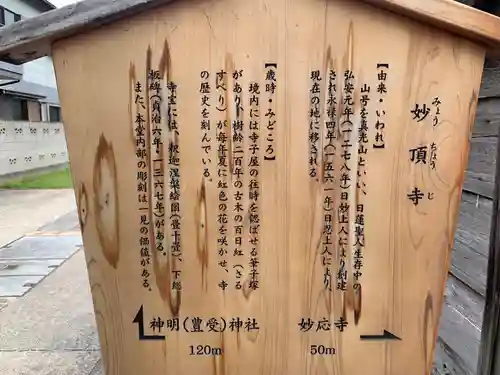 妙頂寺
みょう ちょう じ
【由来・いわれ】
山号を真光山といい、日蓮聖人生存中の
弘安元年(一二七八年)日妙上人により創建
され永禄四年(一五六一年)日忍上人により、
現在の地に移される。
【歳時・みどころ】
境内には寺子屋の往時を認ばせる筆子塚
があり、樹齢二百年の古木の百日紅(さる
すべり)が毎年夏に紅色の花を咲かせ、寺
の歴史を刻んでいる。
寺宝には、釈迦涅槃絵図(畳十畳)、下総
板碑(貞治六年・一三六七年)がある。
また、本堂内部の彫刻は一見の価値がある。
神明(豊受)神社
120m
妙応寺
50m